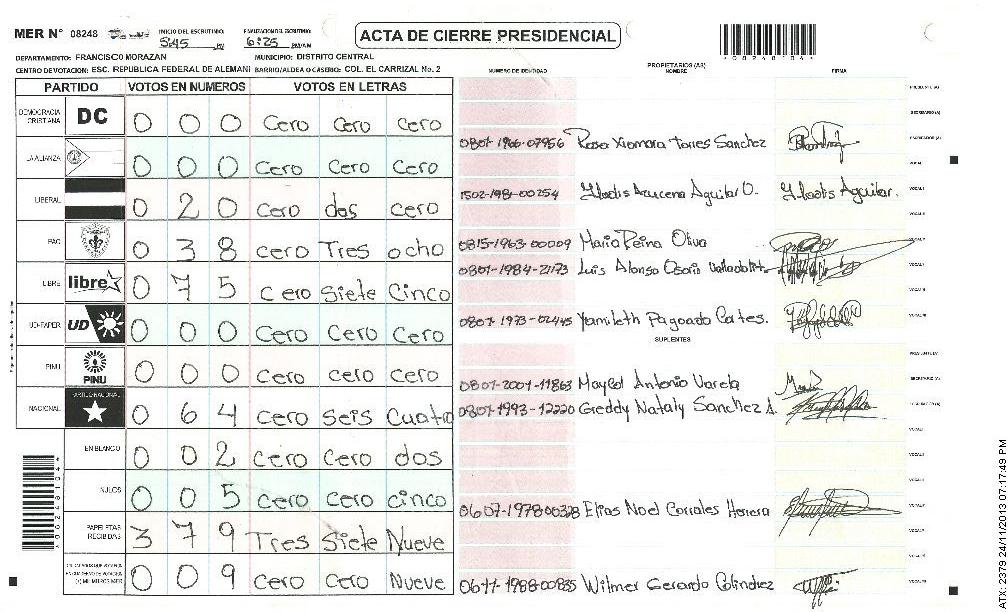 MER N° 08248
INICIO DEL ESCRUTINIO: 5:45 PM
FINALIZACION DEL ESCRUTINIO: 6:25 PM/AM
ACTA DE CIERRE PRESIDENCIAL
*08248104*
DEPARTAMENTO: FRANCISCO MORAZAN MUNICIPIO: DISTRITO CENTRAL
CENTRO DE VOTACION: ESC. REPUBLICA FEDERAL DE ALEMANI BARRIO/ALDEA O CASERIO: COL. EL CARRIZAL No. 2
PARTIDO VOTOS EN NUMEROS VOTOS EN LETRAS
DEMOCRACIA CRISTIANA DC 0 0 0 Cero Cero cero
LA ALIANZA 0 0 0 Cero Cero cero
LIBERAL 0 2 0 cero dos cero
PAC 0 3 8 cero Tres ocho
LIBRE libre 0 7 5 cero Siete Cinco
UD-FAPER UD 0 0 0 Cero Cero Cero
PINU PINU 0 0 0 Cero cero cero
NACIONAL PARTIDO NACIONAL 0 6 4 cero seis Cuatro
EN BLANCO 0 0 2 cero cero dos
NULOS 0 0 5 cero cero cinco
PAPELETAS RECIBIDAS 3 7 9 Tres Siete Nueve
0 0 9 cero cero Nueve
*08248104*
NUMERO DE IDENTIDAD PROPIETARIOS (AS) NOMBRE FIRMA
0801-1966-07956 Rosa Xiomara Torres Sanchez
Aguilar O. Aguilar.
0815-1963-00009 Maria Reina Oliva
0801-1984-2173 Luis Alonso Osorio
0801-1973-02445 Yamileth Pagoado Cortes.
SUPLENTES
0801-2001-11863 Maykol Antonio Varela
0801-1993-12220 Greddy Nataly Sanchez A.
0607-1978-00328 Elias Noel Corrales Herrera
0611-1988-00835 Wilmer Gerardo Colindrez
PRESIDENTE (A)
SECRETARIO (A)
ESCRUTADOR (A)
ATX-2379 24/11/2013 07:17:49 PM